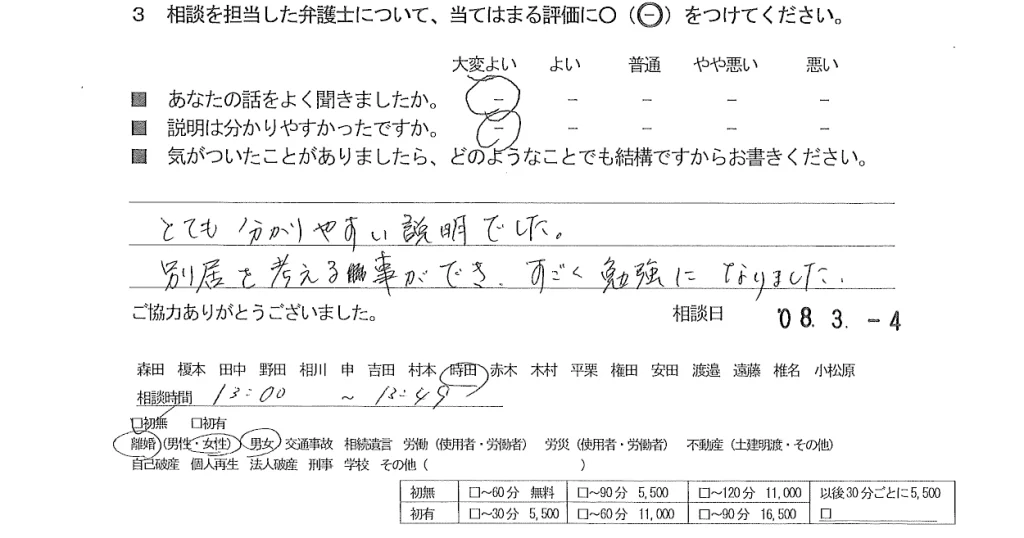 3 相談を担当した弁護士について、当てはまる評価に○(⊖)をつけてください。
大変よい よい 普通 やや悪い 悪い
■ あなたの話をよく聞きましたか。 － － － － －
■ 説明は分かりやすかったですか。 － － － － －
■ 気がついたことがありましたら、どのようなことでも結構ですからお書きください。
とても分かりやすい説明でした。
別居を考える事ができ、すごく勉強になりました。
ご協力ありがとうございました。 相談日 '08. 3. -4
森田 榎本 田中 野田 相川 申 吉田 村本 時田 赤木 木村 平栗 権田 安田 渡邉 遠藤 椎名 小松原
相談時間 13:00 ～ 13:49
□初無 □初有
離婚(男性・女性) 男女 交通事故 相続遺言 労働(使用者・労働者) 労災(使用者・労働者) 不動産(土建明渡・その他)
自己破産 個人再生 法人破産 刑事 学校 その他( )
初無 □～60分 無料 □～90分 5,500 □～120分 11,000 以後30分ごとに5,500
初有 □～30分 5,500 □～60分 11,000 □～90分 16,500 □